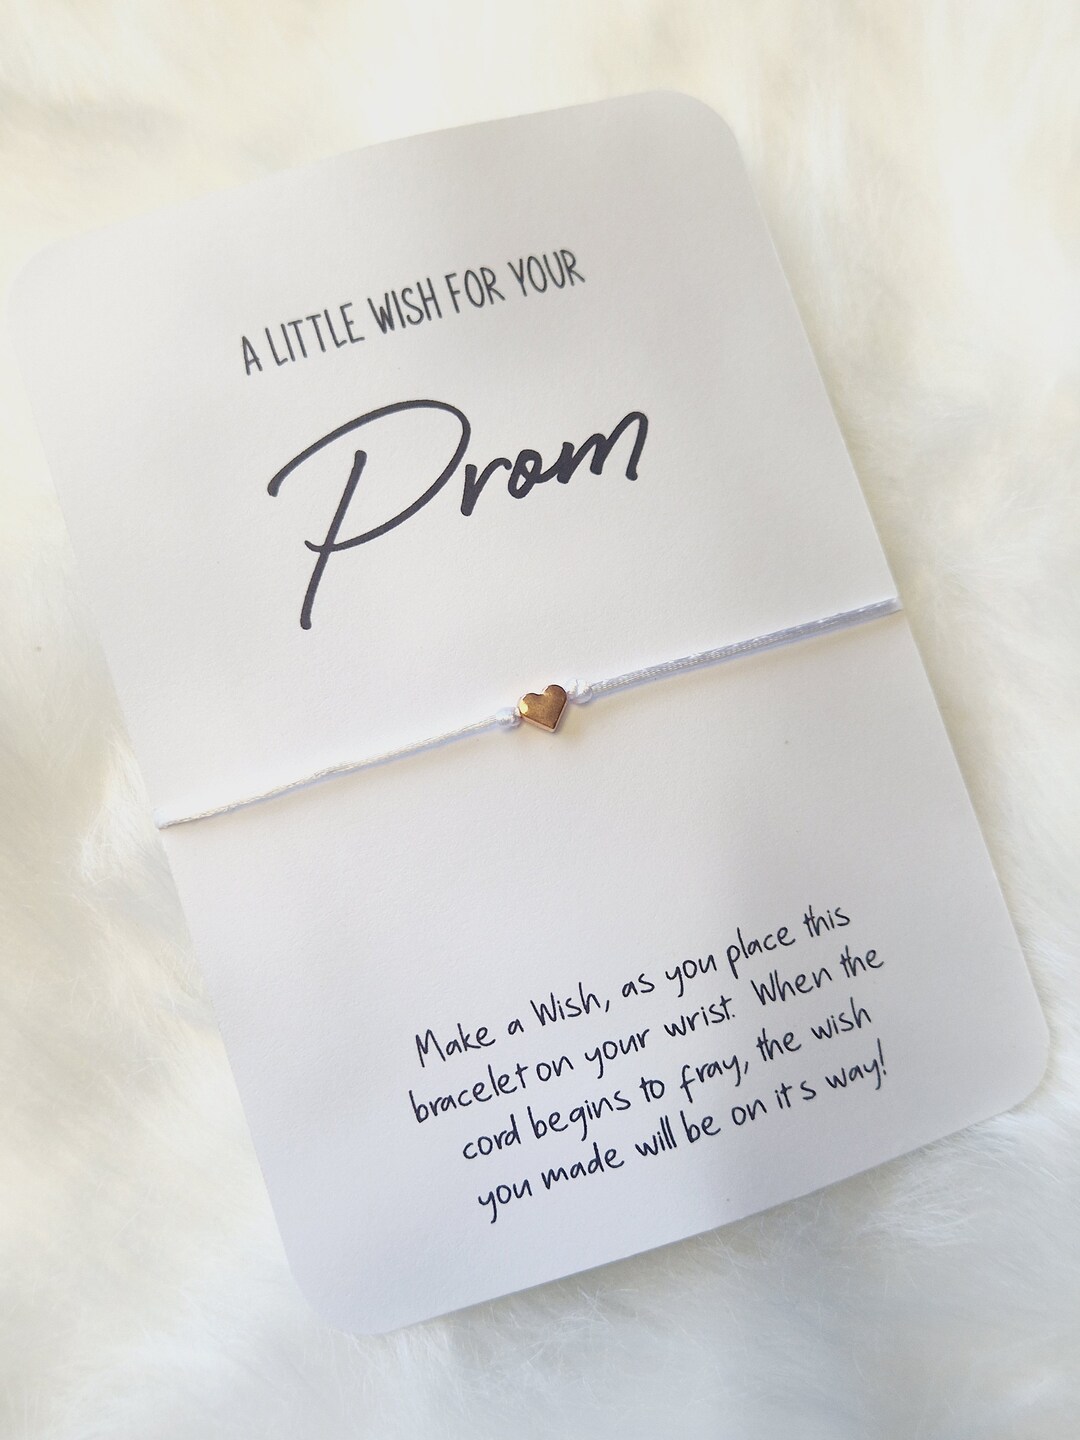 A LITTLE WISH FOR YOUR
Prom
Make a Wish, as you place this
bracelet on your wrist. When the
cord begins to fray, the wish
you made will be on it's way!